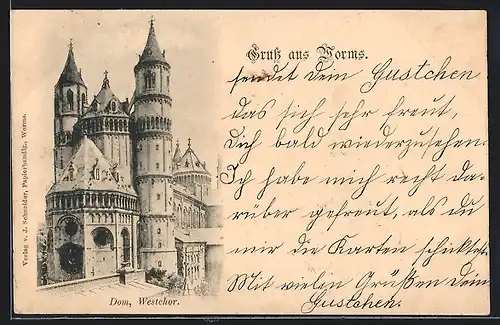 Gruß aus Worms.
sendet dem Gustchen
das sich sehr freut,
Dich bald wiederzusehen.
Ich habe mich recht da-
rüber gefreut, als du
mir die Karten schicktest.
Mit vielen Grüßen Dein
Gustchen.
Dom, Westchor.
Verlag v. J. Schneider, Papierhandlg., Worms.